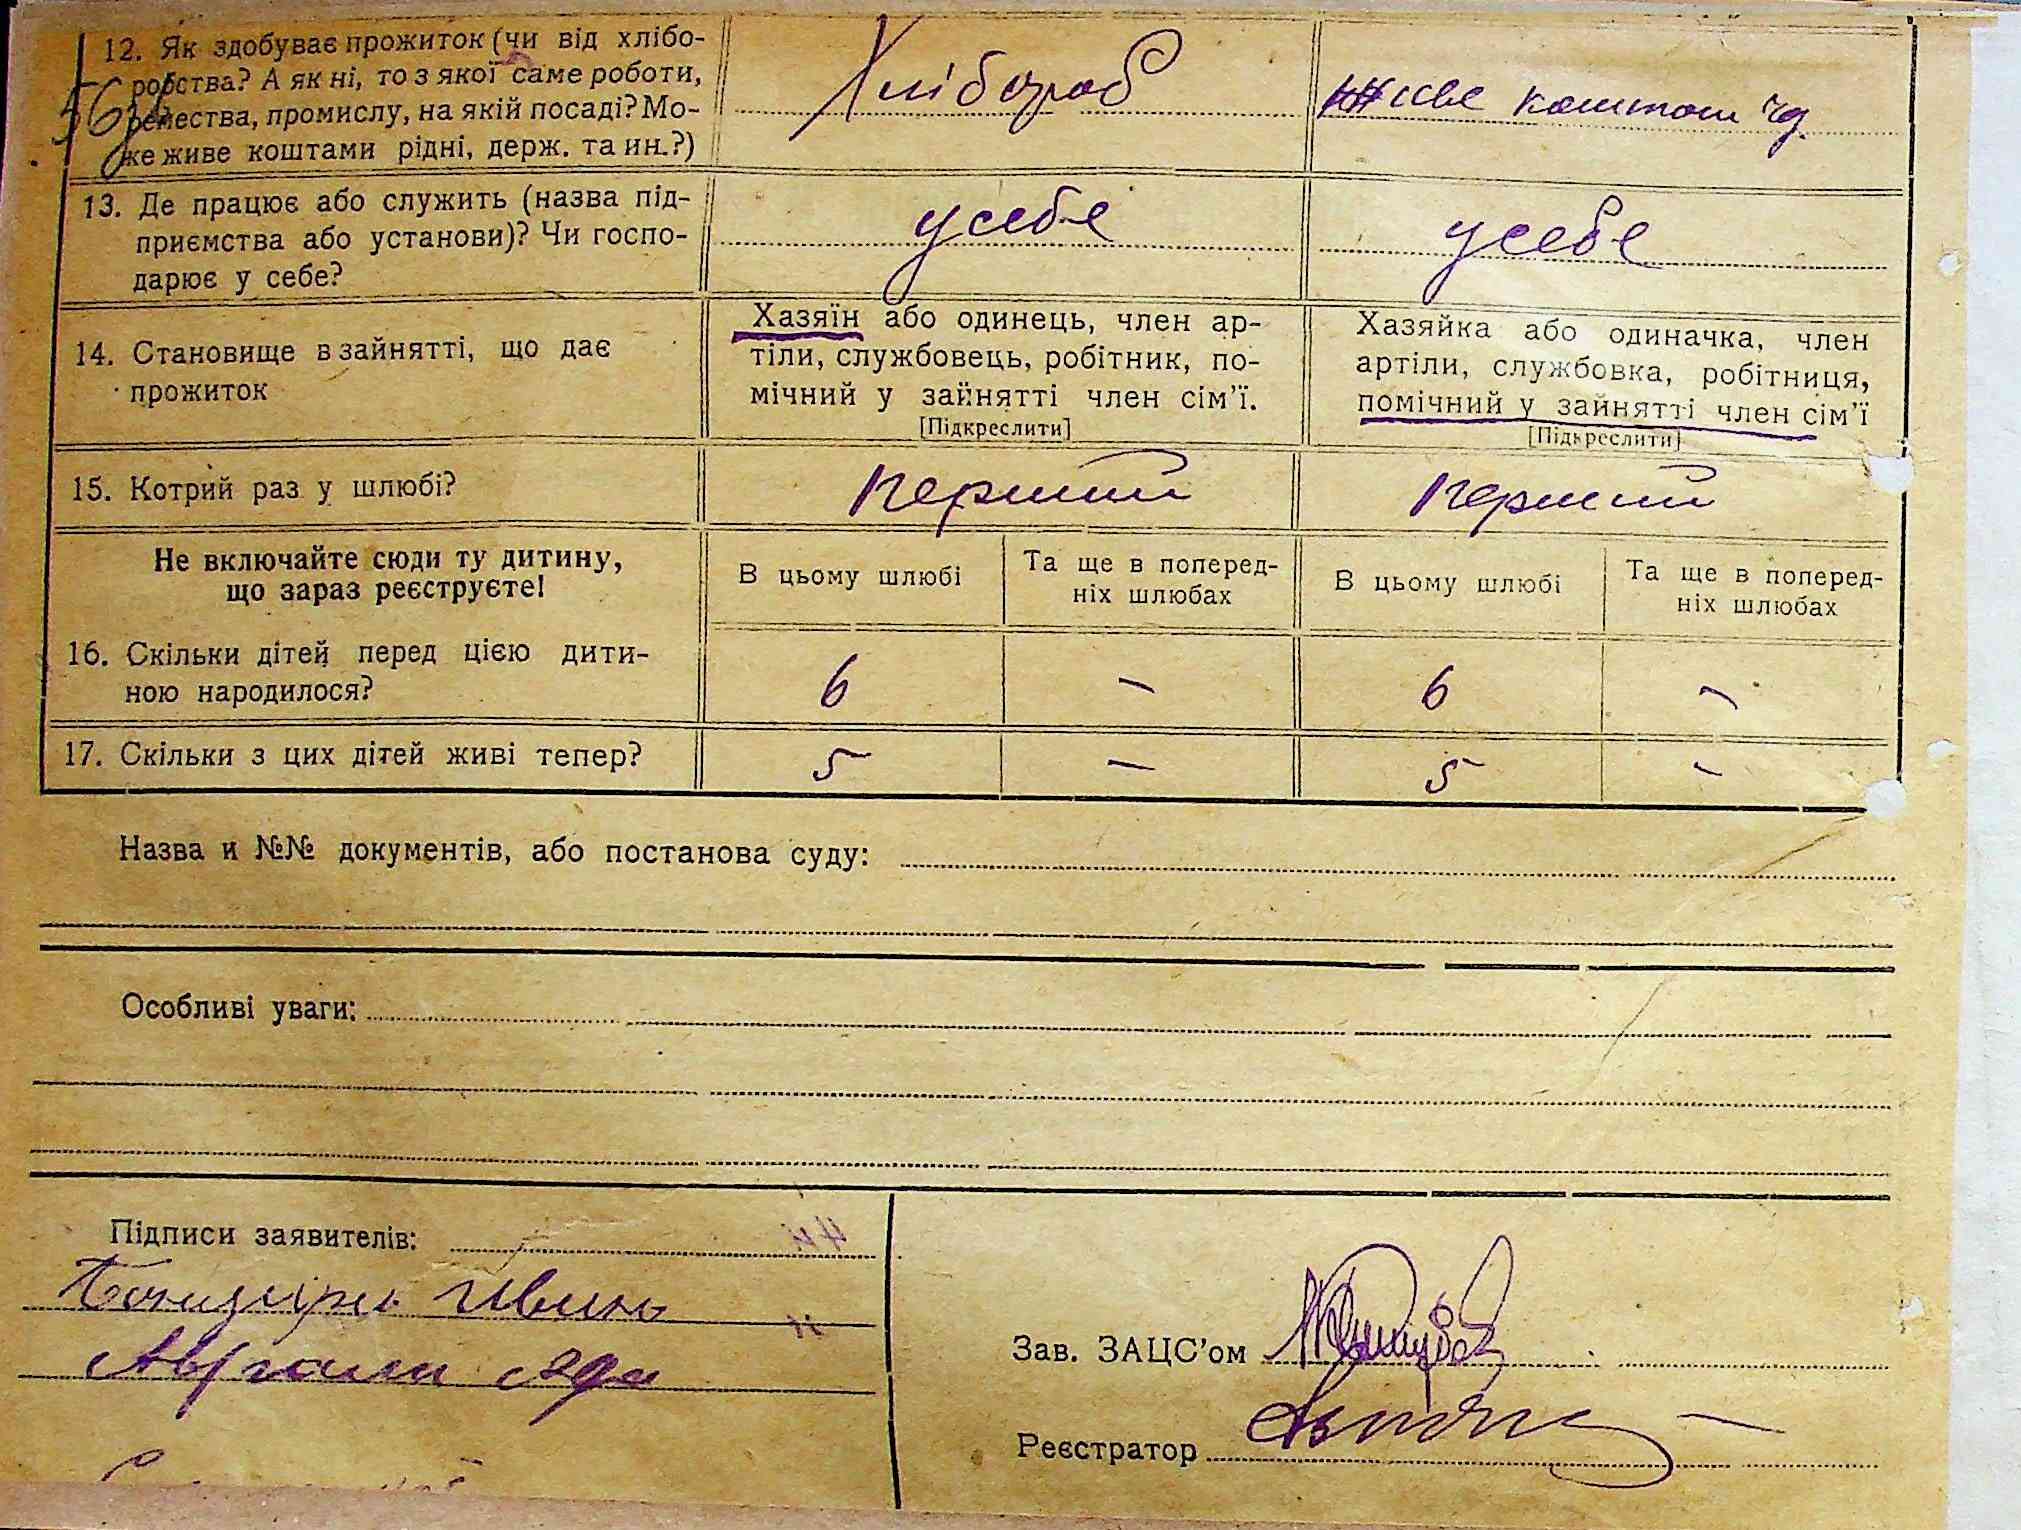 12. Як здобуває прожиток (чи від хлібо-
робства? А як ні, то з якої саме роботи,
ремества, промислу, на якій посаді? Мо-
же живе коштами рідні, держ. та ин.?)
Хлібороб
живе коштом чол.
13. Де працює або служить (назва під-
приємства або установи)? Чи госпо-
дарює у себе?
у себе
у себе
14. Становище в зайнятті, що дає
прожиток
Хазяїн або одинець, член ар-
тіли, службовець, робітник, по-
мічний у зайнятті член сім'ї.
[Підкреслити]
Хазяйка або одиначка, член
артіли, службовка, робітниця,
помічний у зайнятті член сім'ї
[Підкреслити]
15. Котрий раз у шлюбі?
перший
перший
Не включайте сюди ту дитину,
що зараз реєструєте!
В цьому шлюбі
Та ще в поперед-
ніх шлюбах
В цьому шлюбі
Та ще в поперед-
ніх шлюбах
16. Скільки дітей перед цією дити-
ною народилося?
6 – 6 –
17. Скільки з цих дітей живі тепер?
5 – 5 –
Назва и №№ документів, або постанова суду:
Особливі уваги:
Підписи заявителів:
Зав. ЗАЦС'ом
Реєстратор